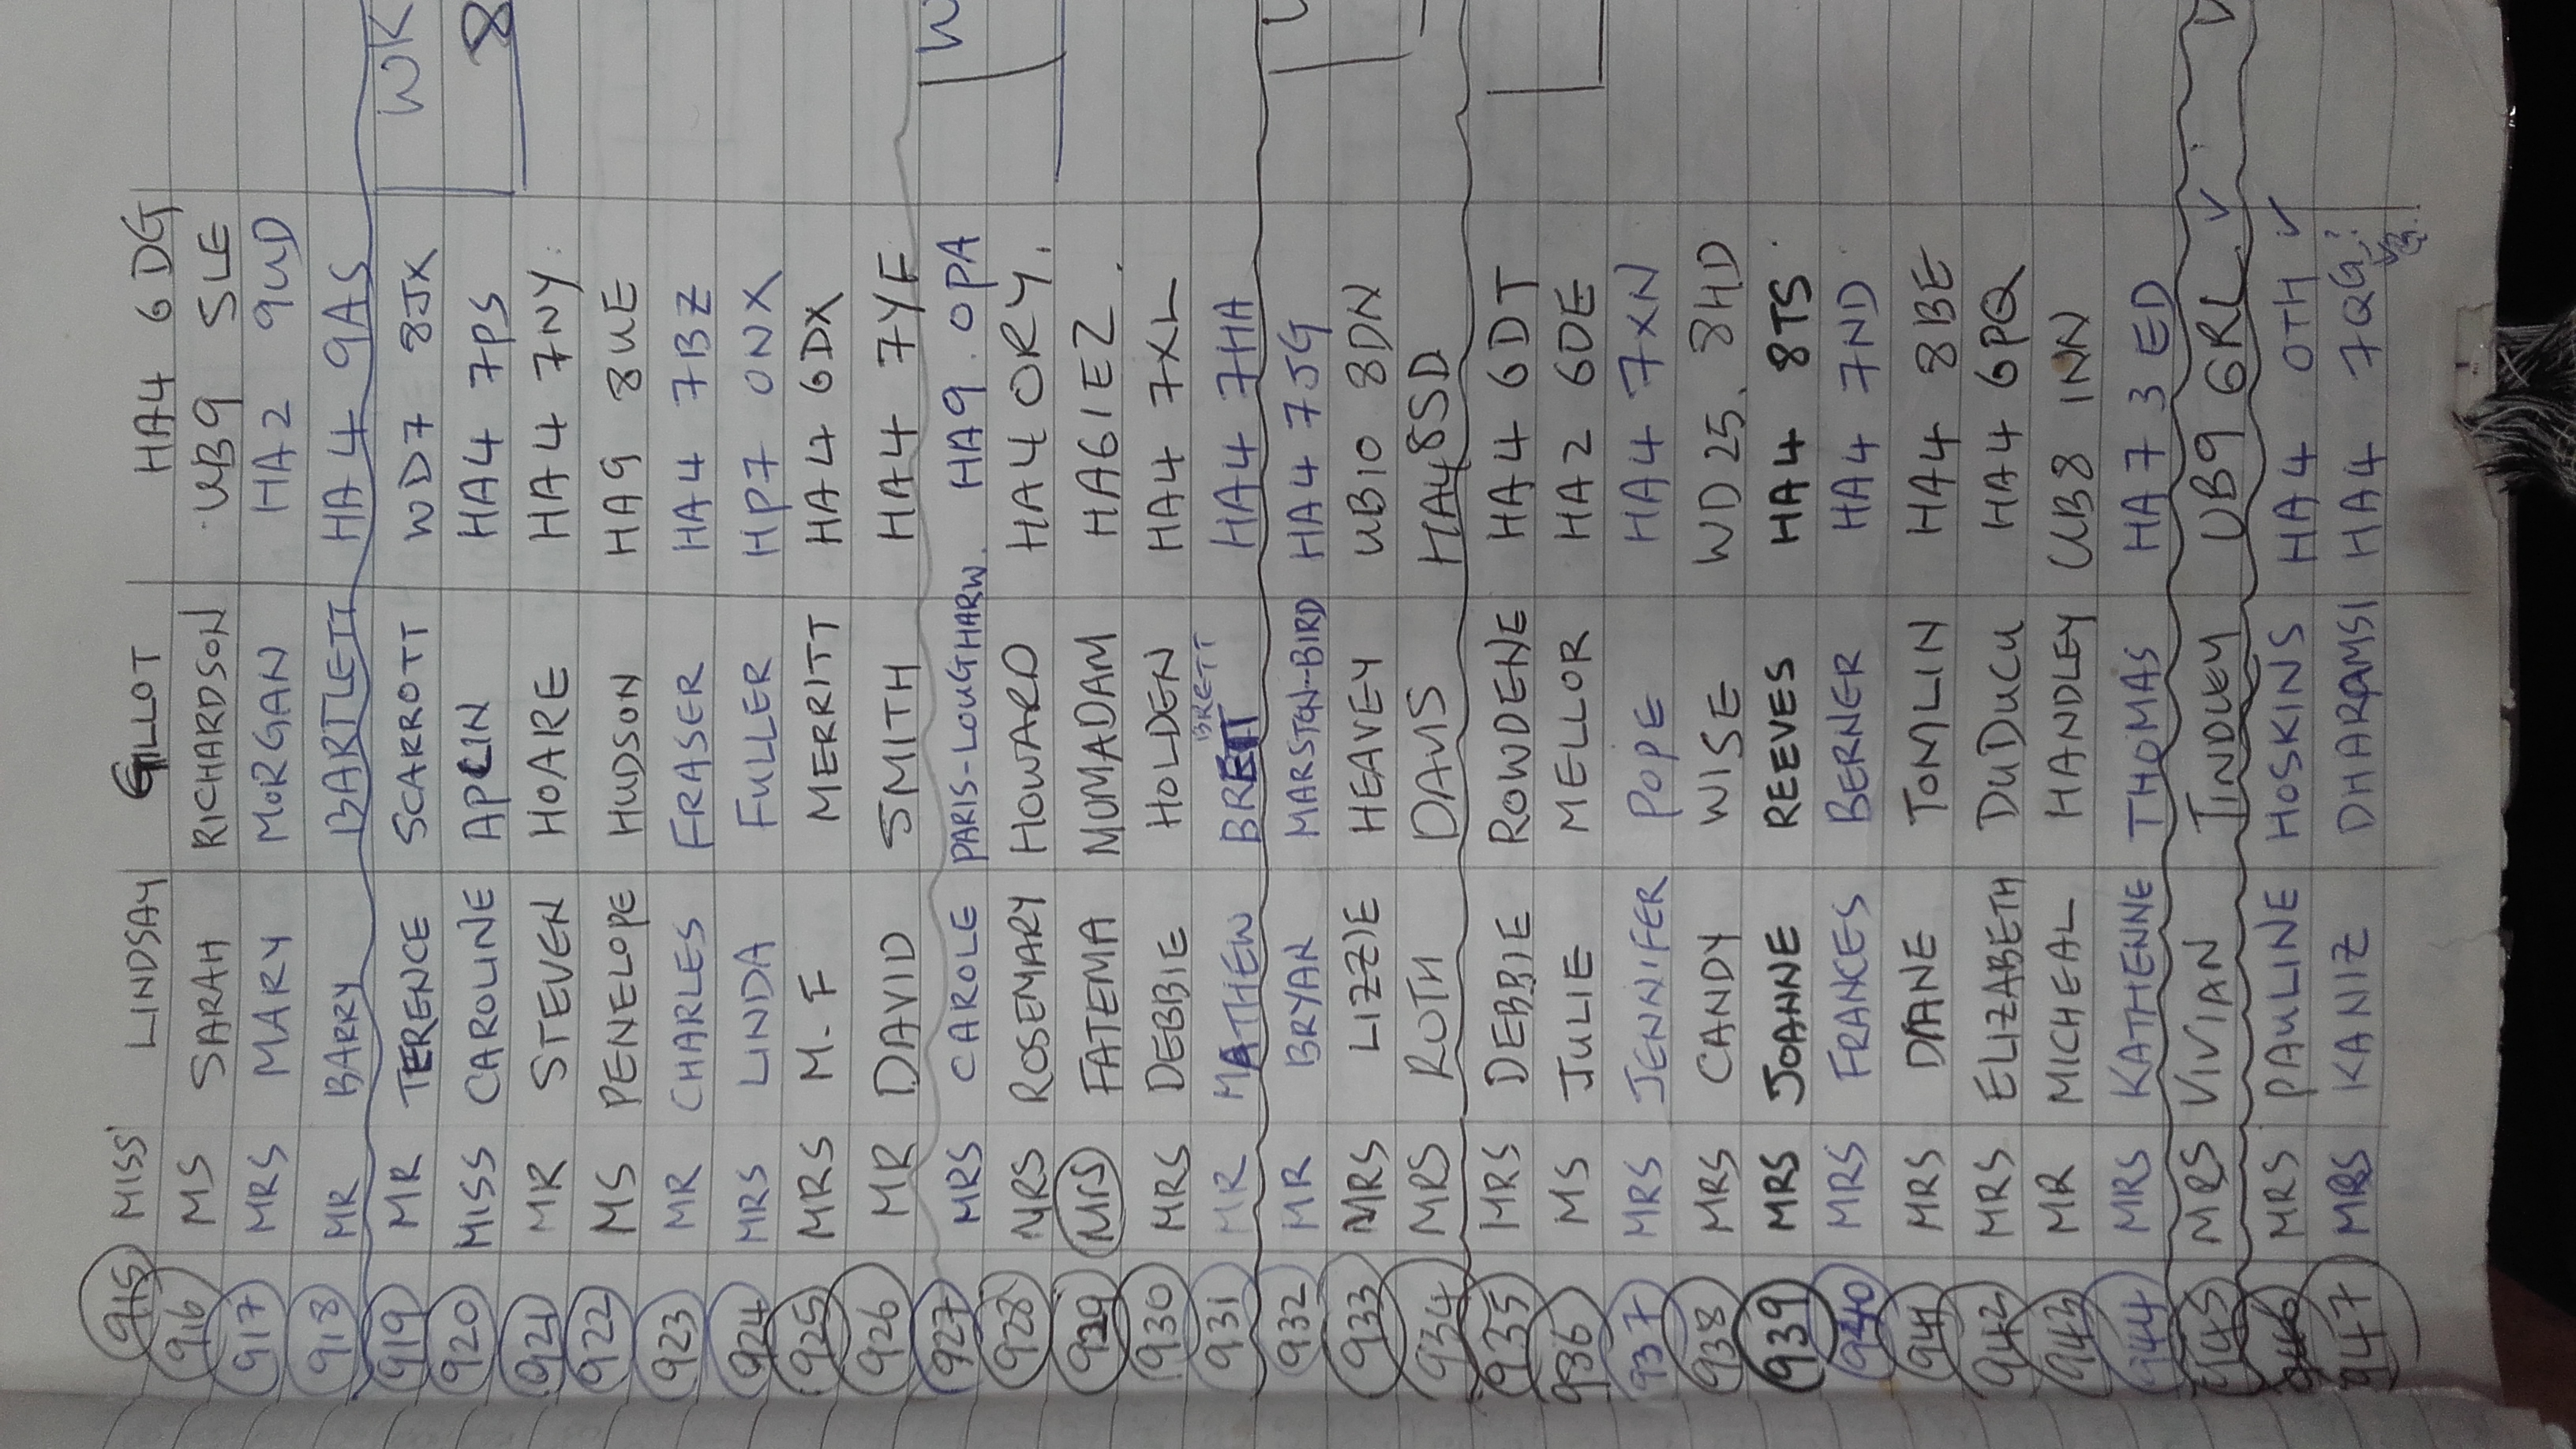 915 MISS LINDSAY GILLOT HA4 6DG
916 MS SARAH RICHARDSON UB9 5LE
917 MRS MARY MORGAN HA2 9UD
918 MR BARRY BARTLETT HA4 9AS
919 MR TERENCE SCARROTT WD7 8JX WK
920 MISS CAROLINE APLIN HA4 7PS 8
921 MR STEVEN HOARE HA4 7NY
922 MS PENELOPE HUDSON HA9 8UE
923 MR CHARLES FRASER HA4 7BZ
924 MRS LINDA FULLER HP7 0NX
925 MRS M-F MERRITT HA4 6DX
926 MR DAVID SMITH HA4 7YF
927 MRS CAROLE HA9. 0PA
928 MRS ROSEMARY HOWARD HA4 0RY.
929 MRS FATEMA MUMADAM HA6 1EZ.
930 MRS DEBBIE HOLDEN HA4 7XL
BRETT
931 MR MATHEW BRETT HA4 7HA
932 MR BRYAN MARSTON-BIRD HA4 7JG
933 MRS LIZZIE HEAVEY UB10 8DN
934 MRS RUTH DAVIS HA4 8SD
935 MRS DEBBIE ROWDENE HA4 6DT
936 MS JULIE MELLOR HA2 6DE
937 MRS JENNIFER POPE HA4 7XN
938 MRS CANDY WISE WD25. 8HD
939 MRS JOANNE REEVES HA4 8TS
940 MRS FRANCES BERNER HA4 7ND
941 MRS DIANE TOMLIN HA4 8BE
942 MRS ELIZABETH DUDUCU HA4 6PQ
943 MR MICHEAL HANDLEY UB8 1NN
944 MRS KATHENNE THOMAS HA7 3ED
945 MRS VIVIAN TINDLEY UB9 6RL ✓
946 MRS PAULINE HOSKINS HA4 0TH ✓
947 MRS KANIZ DHARAMSI HA4 7QG?